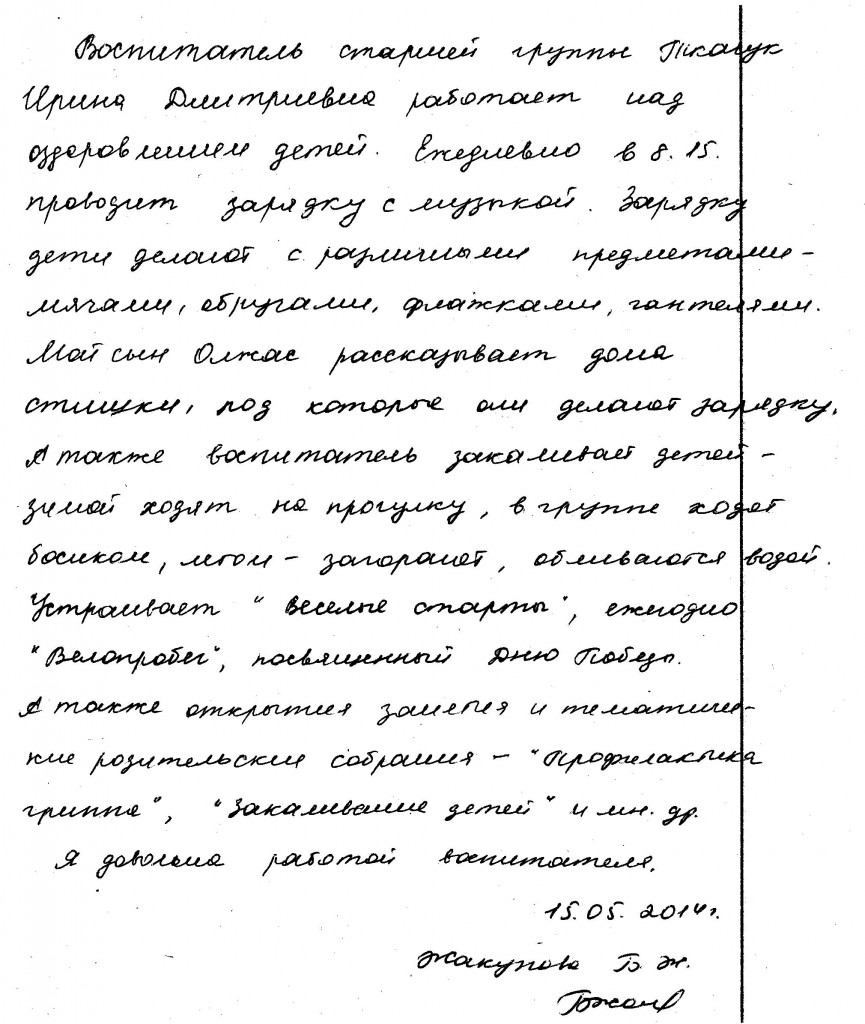 Воспитатель старшей группы Ткачук
Ирина Дмитриевна работает над
оздоровлением детей. Ежедневно в 8.15.
проводит зарядку с музыкой. Зарядку
дети делают с различными предметами -
мячами, обручами, флажками, гантелями.
Мой сын Олжас рассказывает дома
стишки, под которые они делают зарядку.
А также воспитатель закаливает детей -
зимой ходят на прогулку, в группе ходят
босиком, летом - загорают, обливаются водой.
Устраивает "Веселые старты", ежегодно
"Велопробег", посвященный Дню Победы.
А также открытия занятия и тематиче-
кие родительские собрания - "Профилактика
гриппа", "Закаливание детей" и мн. др.
Я довольна работой воспитателя.
15.05.2014г.
Жакупова Б.Ж.